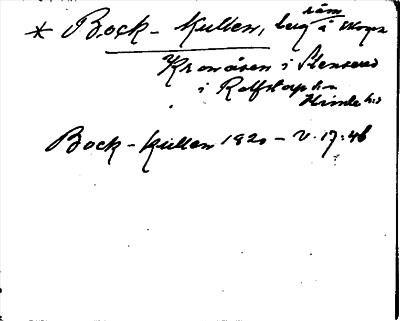 * Bock-Kullen, berg å skogen
råm
Kronåsen i Stensered
i Rolfstorp sn
Himle hd
Bock-Kullen 1820 - V. 17:46